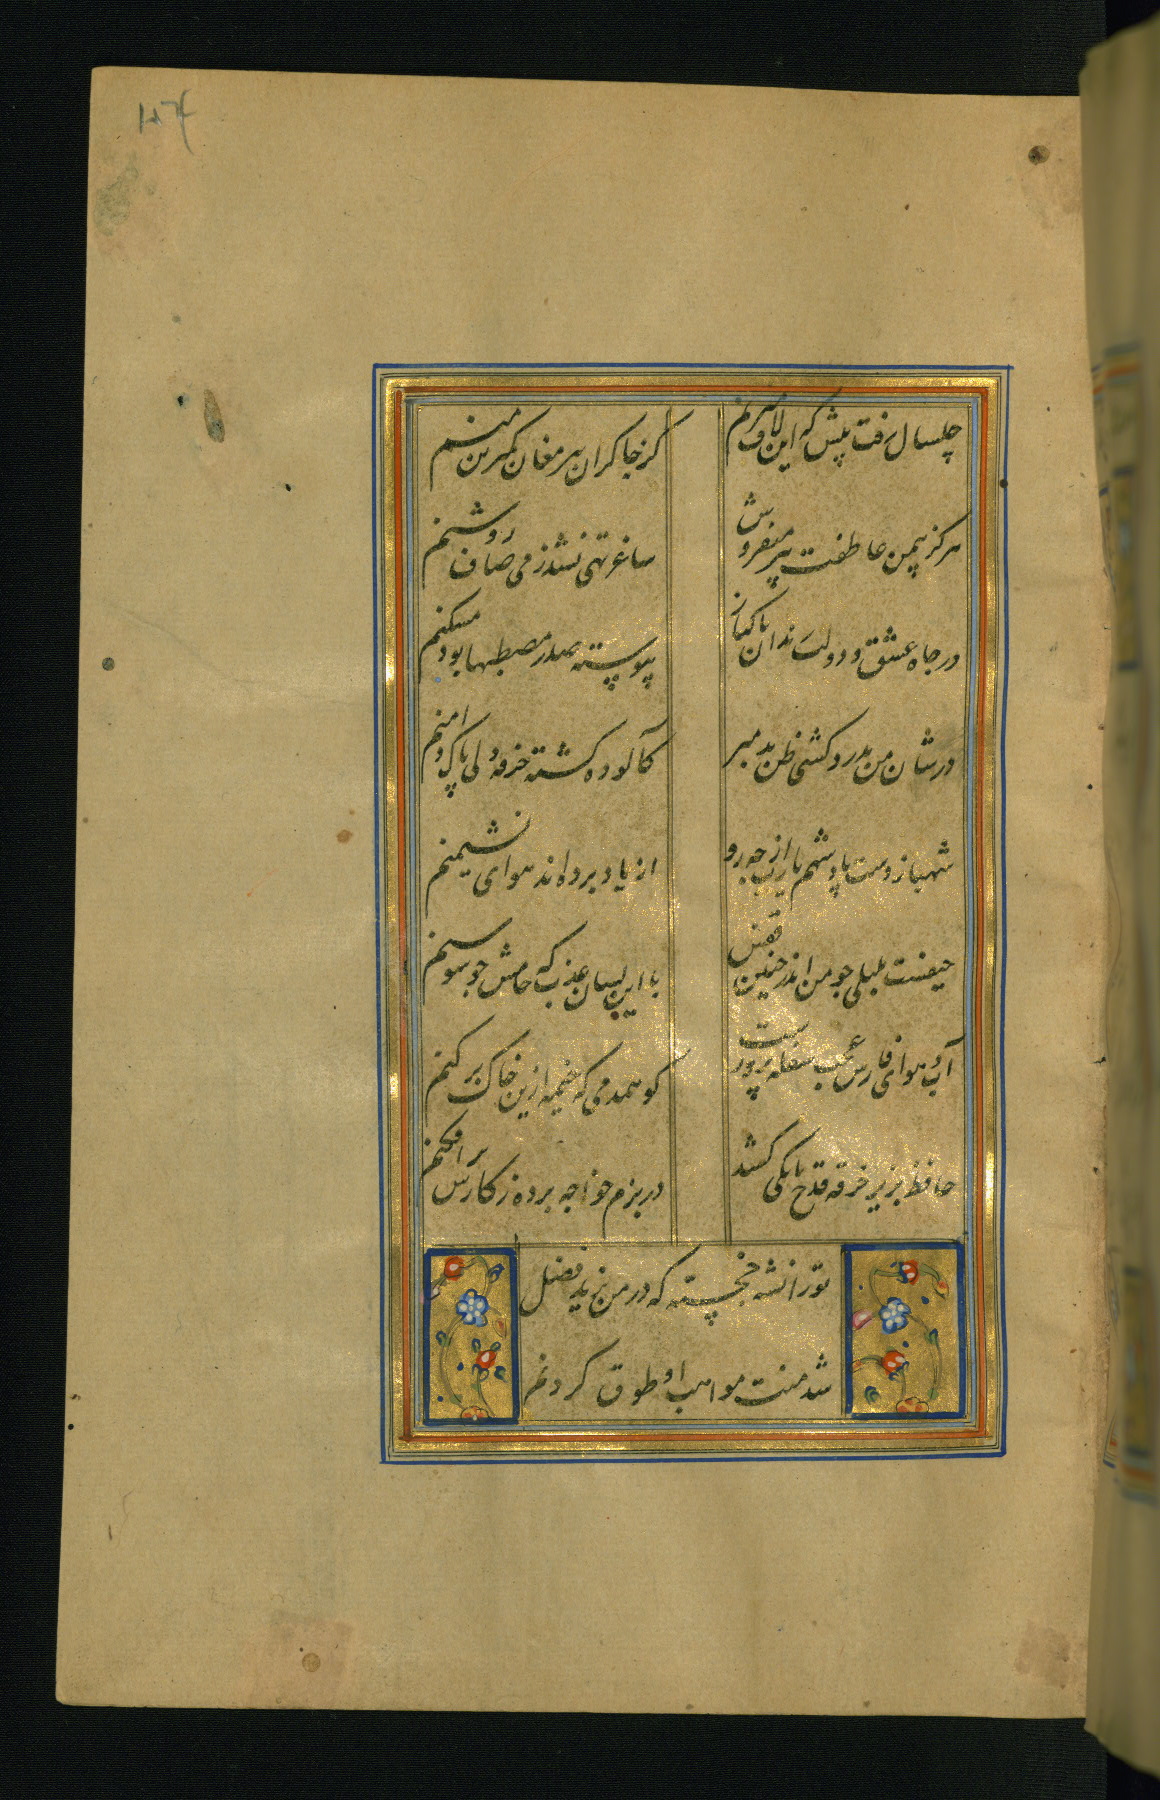 چلسال رفت پیش که این لاف میزنم
کز چاکران پیر مغان کمترین منم
هرگز بیمن عاطفت پیر میفروش
ساغر تهی نشد ز می صاف روشنم
در جاه عشق و دولت رندان پاکباز
پیوسته صدر مصطبها بود مسکنم
در شان من بدرد کشی ظن بد مبر
کآلوده کشته خرقه ولی پاک دامنم
شهباز دست پادشهم یارب از چه رو
از یاد برده‌اند هوای نشیمنم
حیفست بلبلی چو من اندر چنین قفس
با این لسان عذب که خامش چو سوسنم
آب و هوای فارس عجب سفله پرورست
کو همدمی که خیمه ازین خاک برکنم
حافظ بزیر خرقه قدح تا بکی کشد
در بزم خواجه پرده ز کارش برافکنم
تورانشه خجسته که در من یزید فضل
شد منت مواهب او طوق کردنم